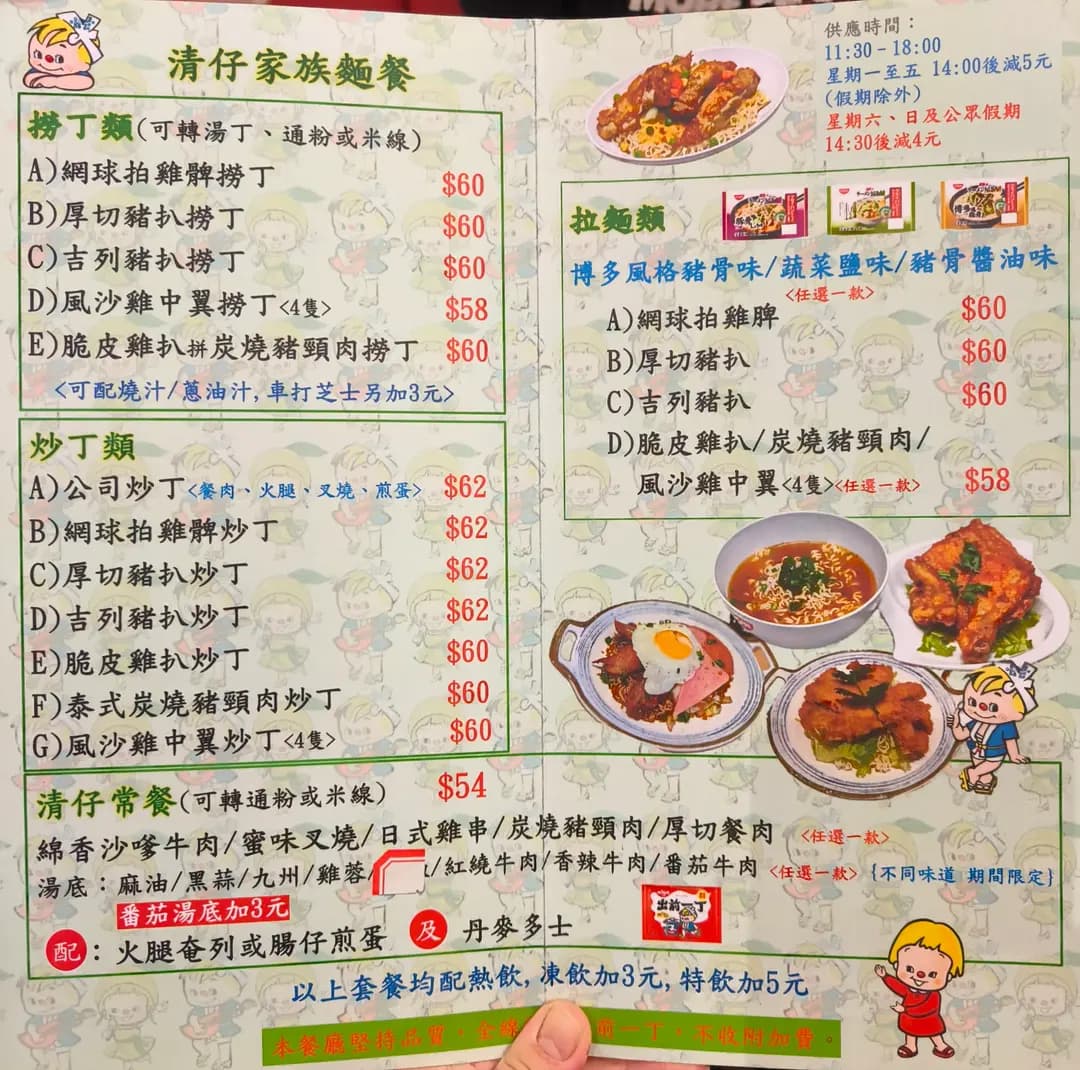 清仔家族麵餐
撈丁類(可轉湯丁、通粉或米線)
A)網球拍雞髀撈丁 $60
B)厚切豬扒撈丁 $60
C)吉列豬扒撈丁 $60
D)風沙雞中翼撈丁<4隻> $58
E)脆皮雞扒拼炭燒豬頸肉撈丁 $60
<可配燒汁/蔥油汁,車打芝士另加3元>
炒丁類
A)公司炒丁<餐肉、火腿、叉燒、煎蛋> $62
B)網球拍雞髀炒丁 $62
C)厚切豬扒炒丁 $62
D)吉列豬扒炒丁 $62
E)脆皮雞扒炒丁 $60
F)泰式炭燒豬頸肉炒丁 $60
G)風沙雞中翼炒丁<4隻> $60
供應時間：
11:30-18:00
星期一至五 14:00後減5元
(假期除外)
星期六、日及公眾假期
14:30後減4元
拉麵類
博多風格豬骨味/蔬菜鹽味/豬骨醬油味
<任選一款>
A)網球拍雞脾 $60
B)厚切豬扒 $60
C)吉列豬扒 $60
D)脆皮雞扒/炭燒豬頸肉/
風沙雞中翼<4隻><任選一款> $58
清仔常餐(可轉通粉或米線) $54
綿香沙嗲牛肉/蜜味叉燒/日式雞串/炭燒豬頸肉/厚切餐肉 <任選一款>
湯底：麻油/黑蒜/九州/雞蓉/ /紅燒牛肉/香辣牛肉/番茄牛肉 <任選一款> {不同味道 期間限定}
番茄湯底加3元
出前一丁
配：火腿奄列或腸仔煎蛋 及 丹麥多士
以上套餐均配熱飲,凍飲加3元,特飲加5元
本餐廳堅持品質，全線 前一丁，不收附加費。